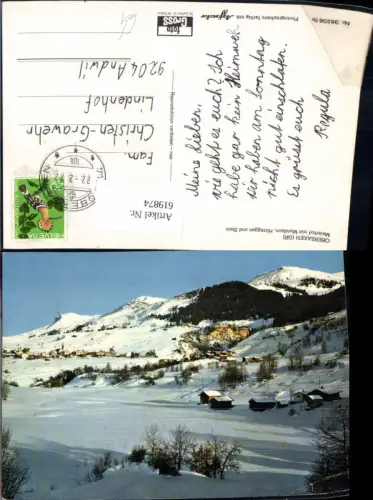 Meine Lieben,
wie geht es euch? Ich
habe gar kein Heimweh.
Wir haben am Sonntag
nicht gut einschlafen.
Es grüsst euch
Regula
Fam.
Christen-Grawehr
Lindenhof
9204 Andwil
OBERSAXEN (GR)
Meierhof mit Mundaun, Hitzeggen und Stein
Reproduktion verboten
foto
GROSS
Nr. 36206
Artikel Nr.
619874
HELVETIA